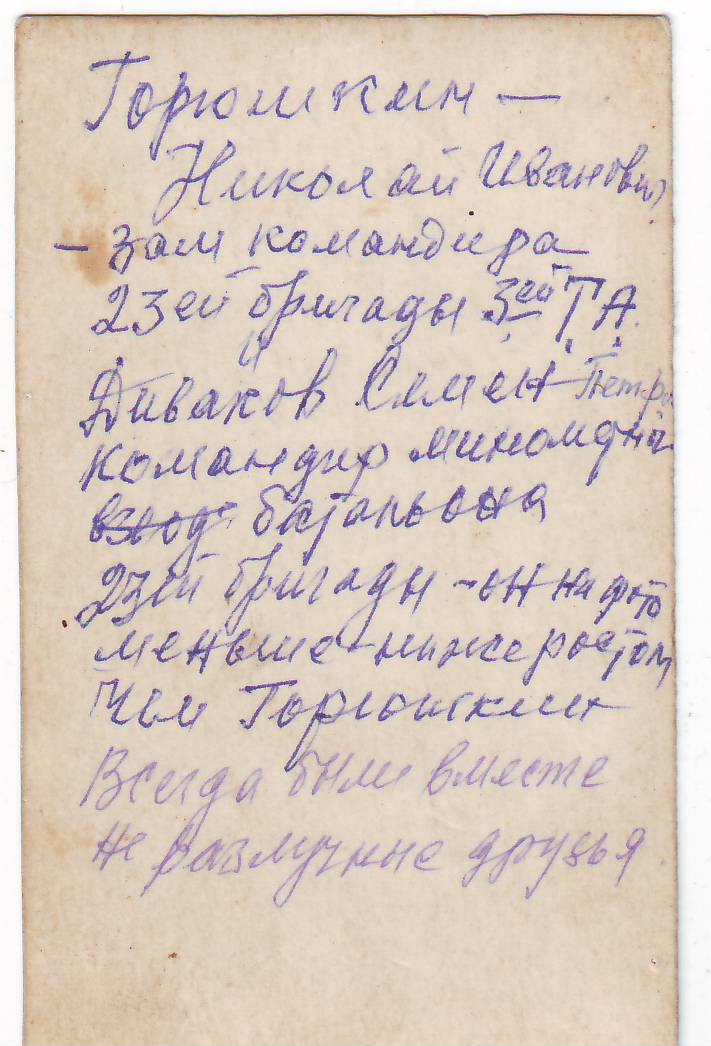 Горюшкин —
Николай Иванович
- зам командира
23ей бригады 3ей ТА.
Диваков Семен Петро
командир миномётны
взвода батальона
23ей бригады - он на фото
меньше - ниже ростом
чем Горюшкин
Всегда были вместе
не разлучные друзья.